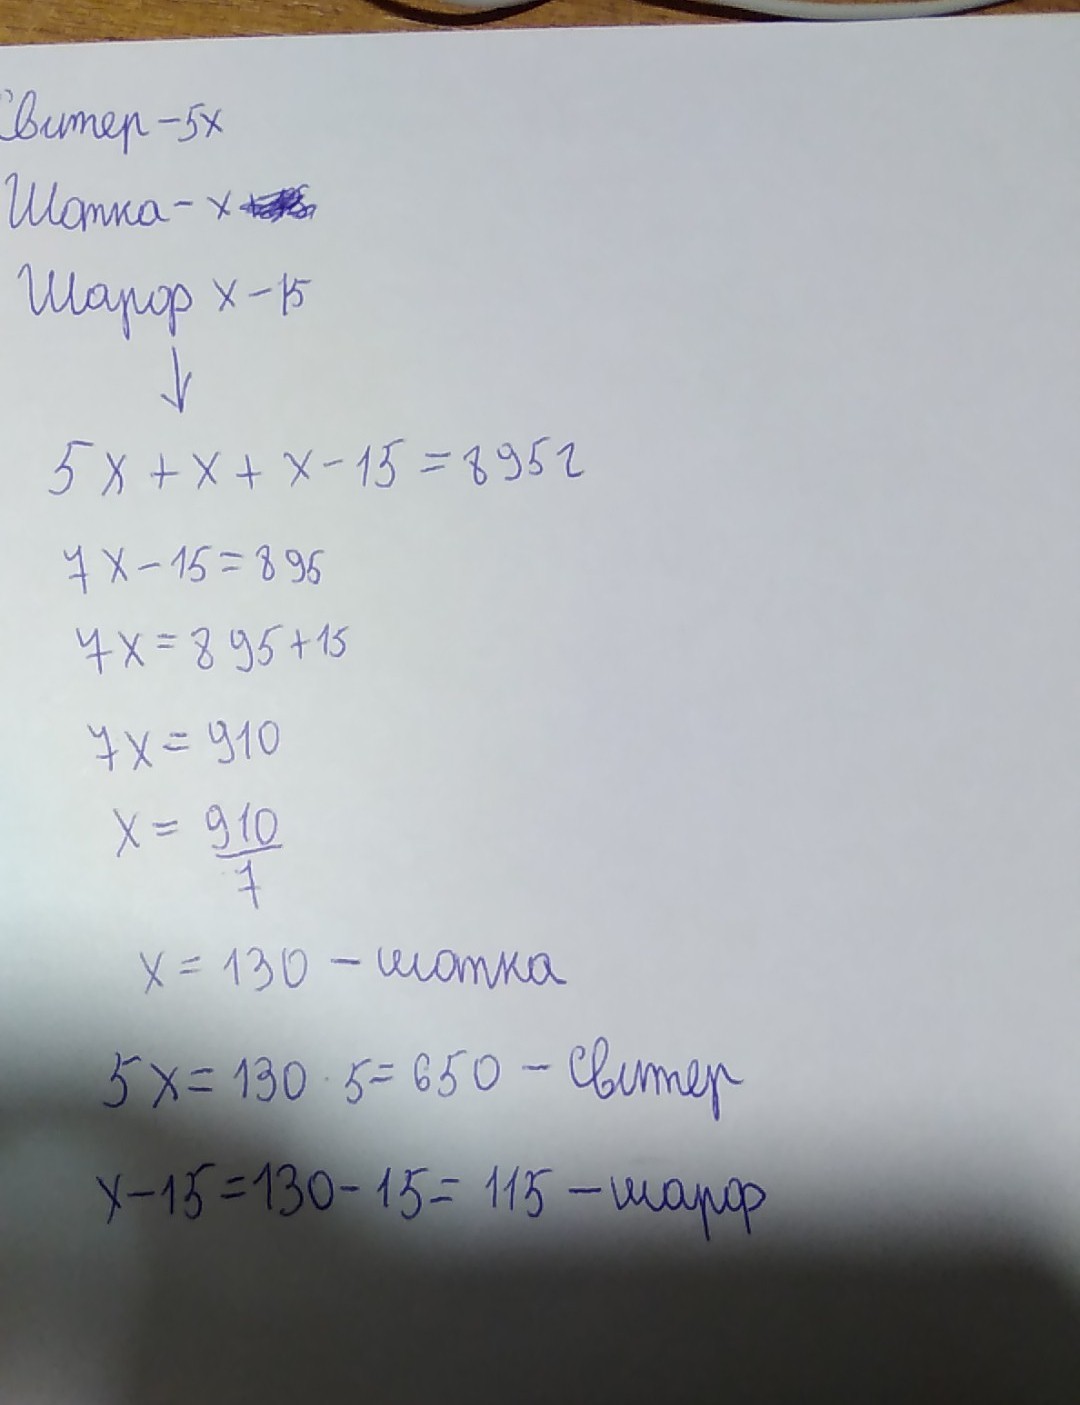 Свитер - 5x
Шапка - x
Шарф x - 15
↓
5x + x + x - 15 = 895 г
7x - 15 = 895
7x = 895 + 15
7x = 910
x = 910/7
x = 130 - шапка
5x = 130 · 5 = 650 - Свитер
x - 15 = 130 - 15 = 115 - шарф